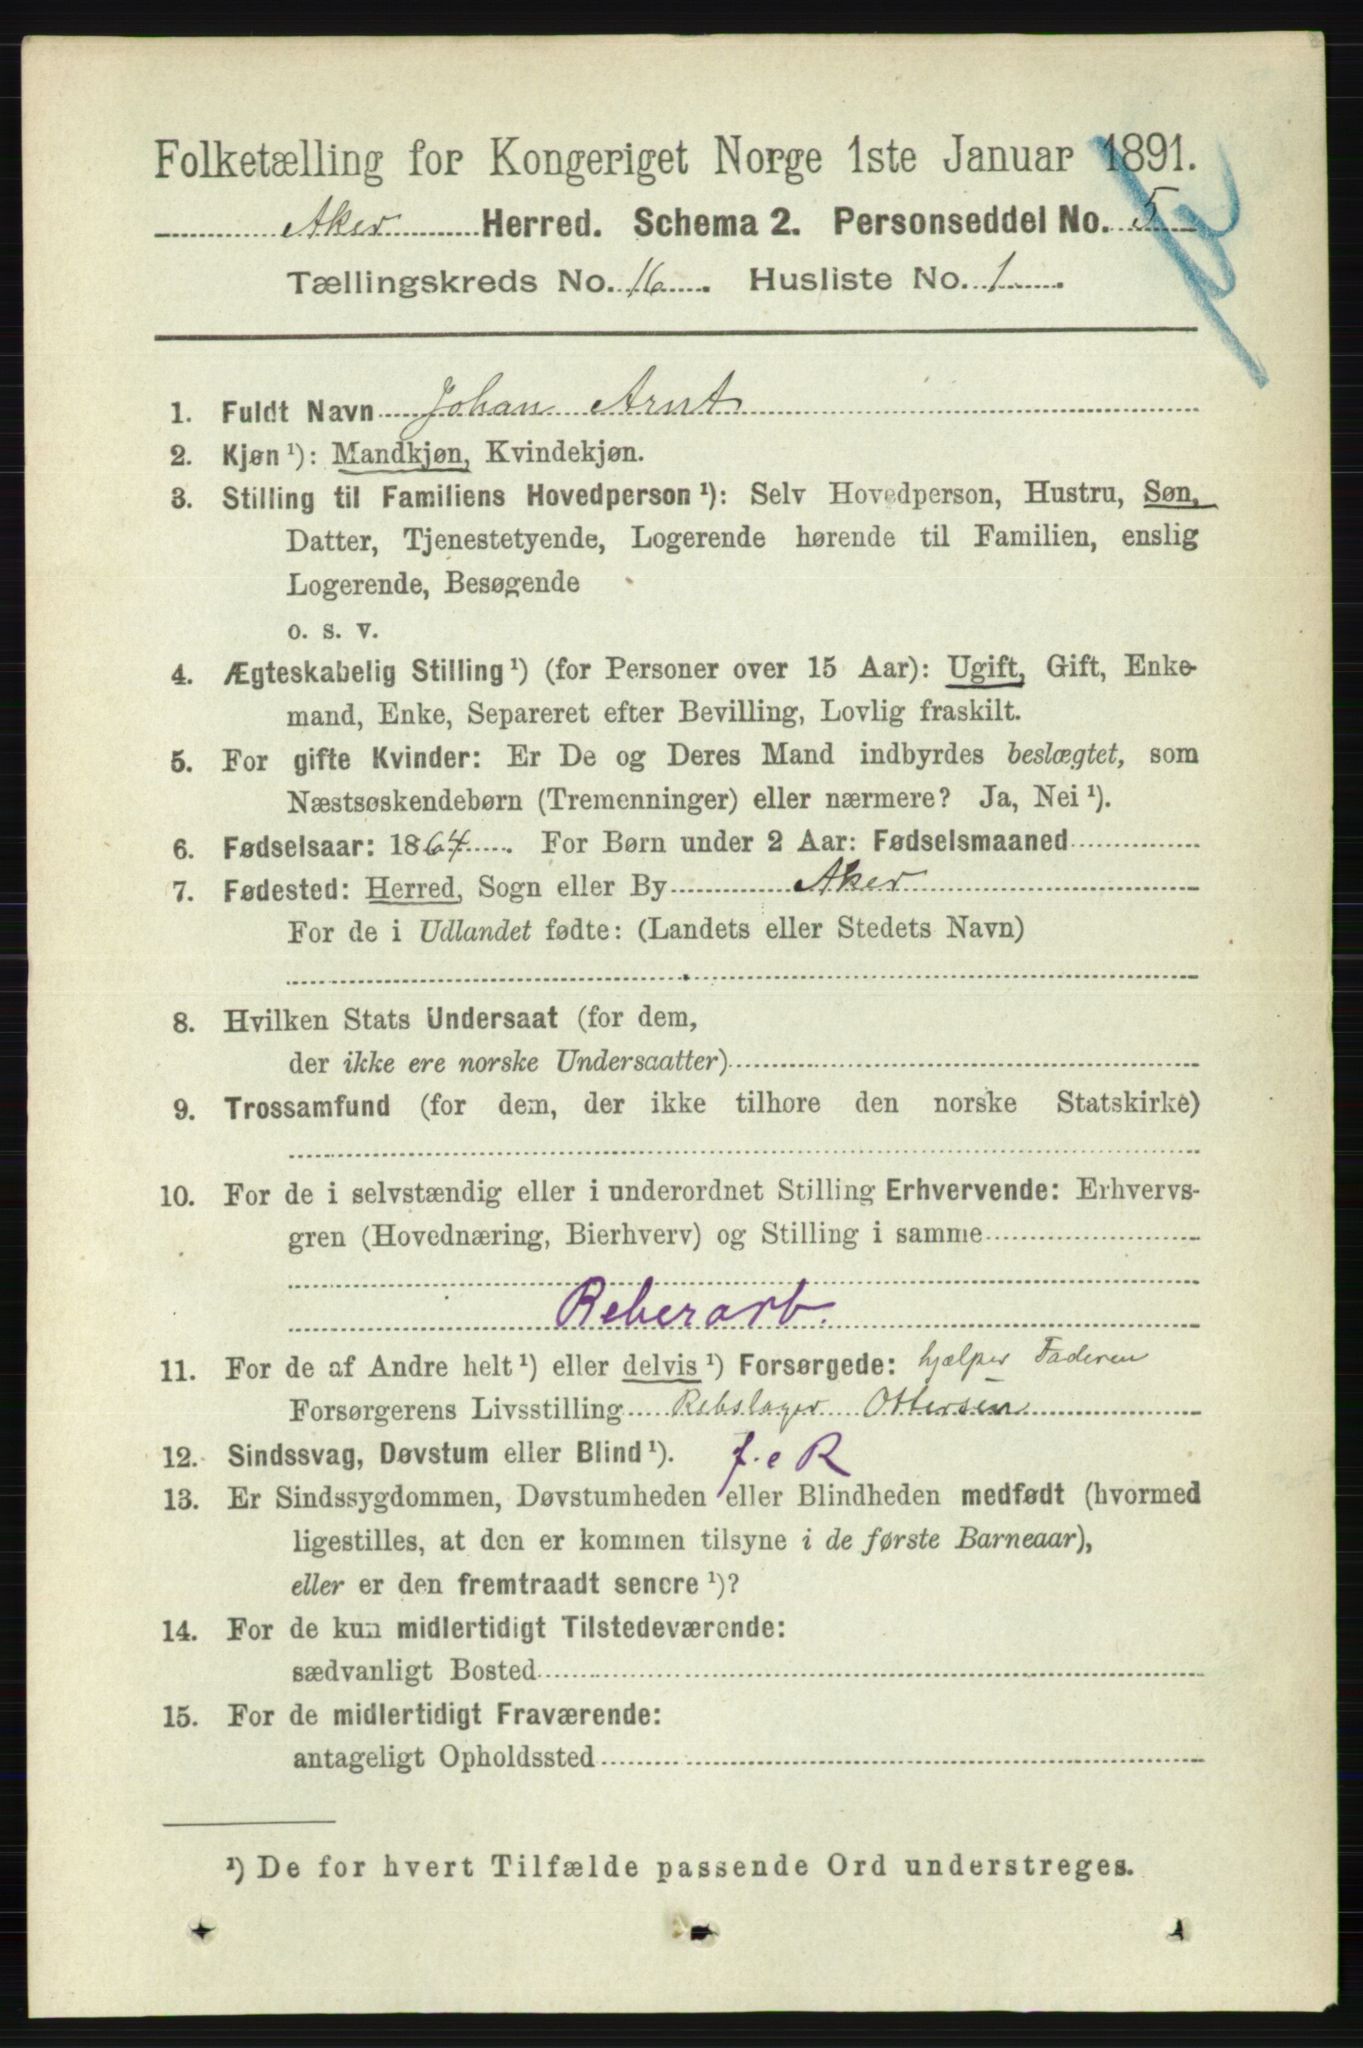 Folketælling for Kongeriget Norge 1ste Januar 1891.
Aker Herred. Schema 2. Personseddel No. 5
Tællingskreds No. 16. Husliste No. 1.
1. Fuldt Navn Johan Arnt
2. Kjøn ¹): Mandkjøn, Kvindekjøn.
3. Stilling til Familiens Hovedperson ¹): Selv Hovedperson, Hustru, Søn,
Datter, Tjenestetyende, Logerende hørende til Familien, enslig
Logerende, Besøgende
o. s. v.
4. Ægteskabelig Stilling ¹) (for Personer over 15 Aar): Ugift, Gift, Enke-
mand, Enke, Separeret efter Bevilling, Lovlig fraskilt.
5. For gifte Kvinder: Er De og Deres Mand indbyrdes beslægtet, som
Næstsøskendebørn (Tremenninger) eller nærmere? Ja, Nei ¹).
6. Fødselsaar: 1864. For Børn under 2 Aar: Fødselsmaaned
7. Fødested: Herred, Sogn eller By Aker
For de i Udlandet fødte: (Landets eller Stedets Navn)
8. Hvilken Stats Undersaat (for dem,
der ikke ere norske Undersaatter)
9. Trossamfund (for dem, der ikke tilhore den norske Statskirke)
10. For de i selvstændig eller i underordnet Stilling Erhvervende: Erhvervs-
gren (Hovednæring, Bierhverv) og Stilling i samme
Reberarb.
11. For de af Andre helt ¹) eller delvis ¹) Forsørgede: hjælper Faderen
Forsørgerens Livsstilling Rebslager Ottersen
12. Sindssvag, Døvstum eller Blind ¹). f. e R
13. Er Sindssygdommen, Døvstumheden eller Blindheden medfødt (hvormed
ligestilles, at den er kommen tilsyne i de første Barneaar),
eller er den fremtraadt senere ¹)?
14. For de kun midlertidigt Tilstedeværende:
sædvanligt Bosted
15. For de midlertidigt Fraværende:
antageligt Opholdssted
¹) De for hvert Tilfælde passende Ord understreges.